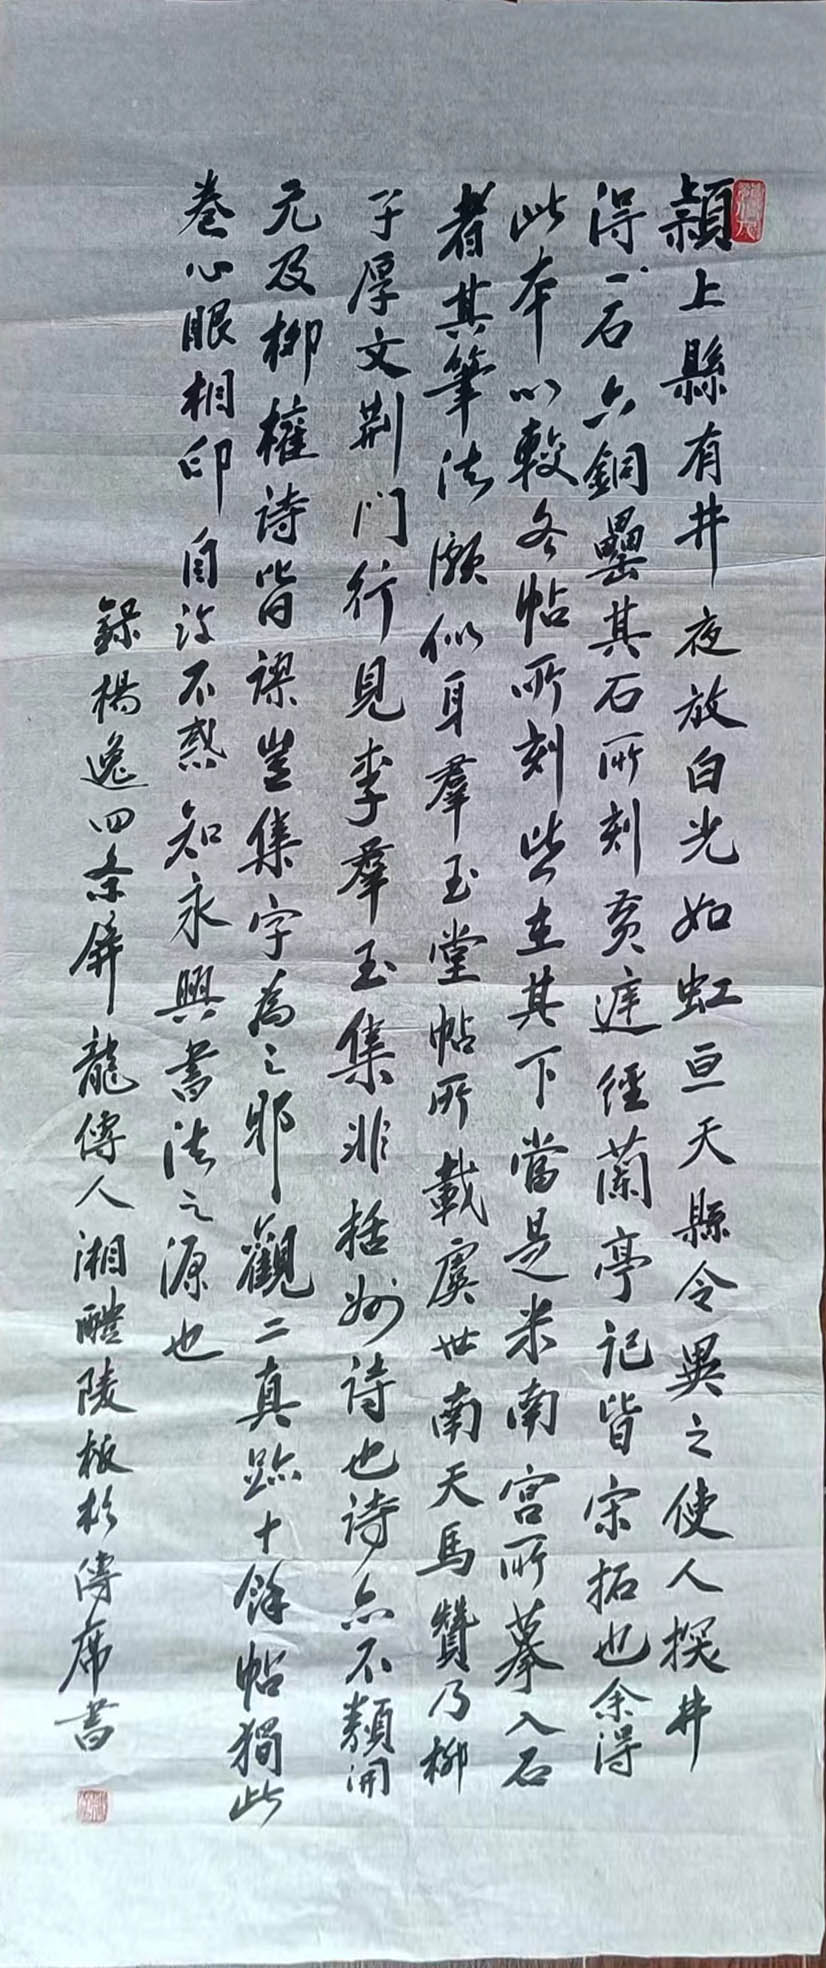 潁上縣有井夜放白光如虹亘天縣令異之使人探井
得一石六銅罍其石所刻黃庭經蘭亭記皆宋拓也余得
此本以較各帖所刻皆在其下當是米南宮所摹入石
者其筆法頗似耳羣玉堂帖所載虞世南天馬贊乃柳
子厚文荊門行見李羣玉集非括州詩也詩亦不類開
元及柳權詩皆謬豈集字為之耶觀二真跡十餘帖獨此
卷心眼相印自許不惑知永興書法之源也
錄楊逸四条屏龍傳人湘醴陵板杉傳席書